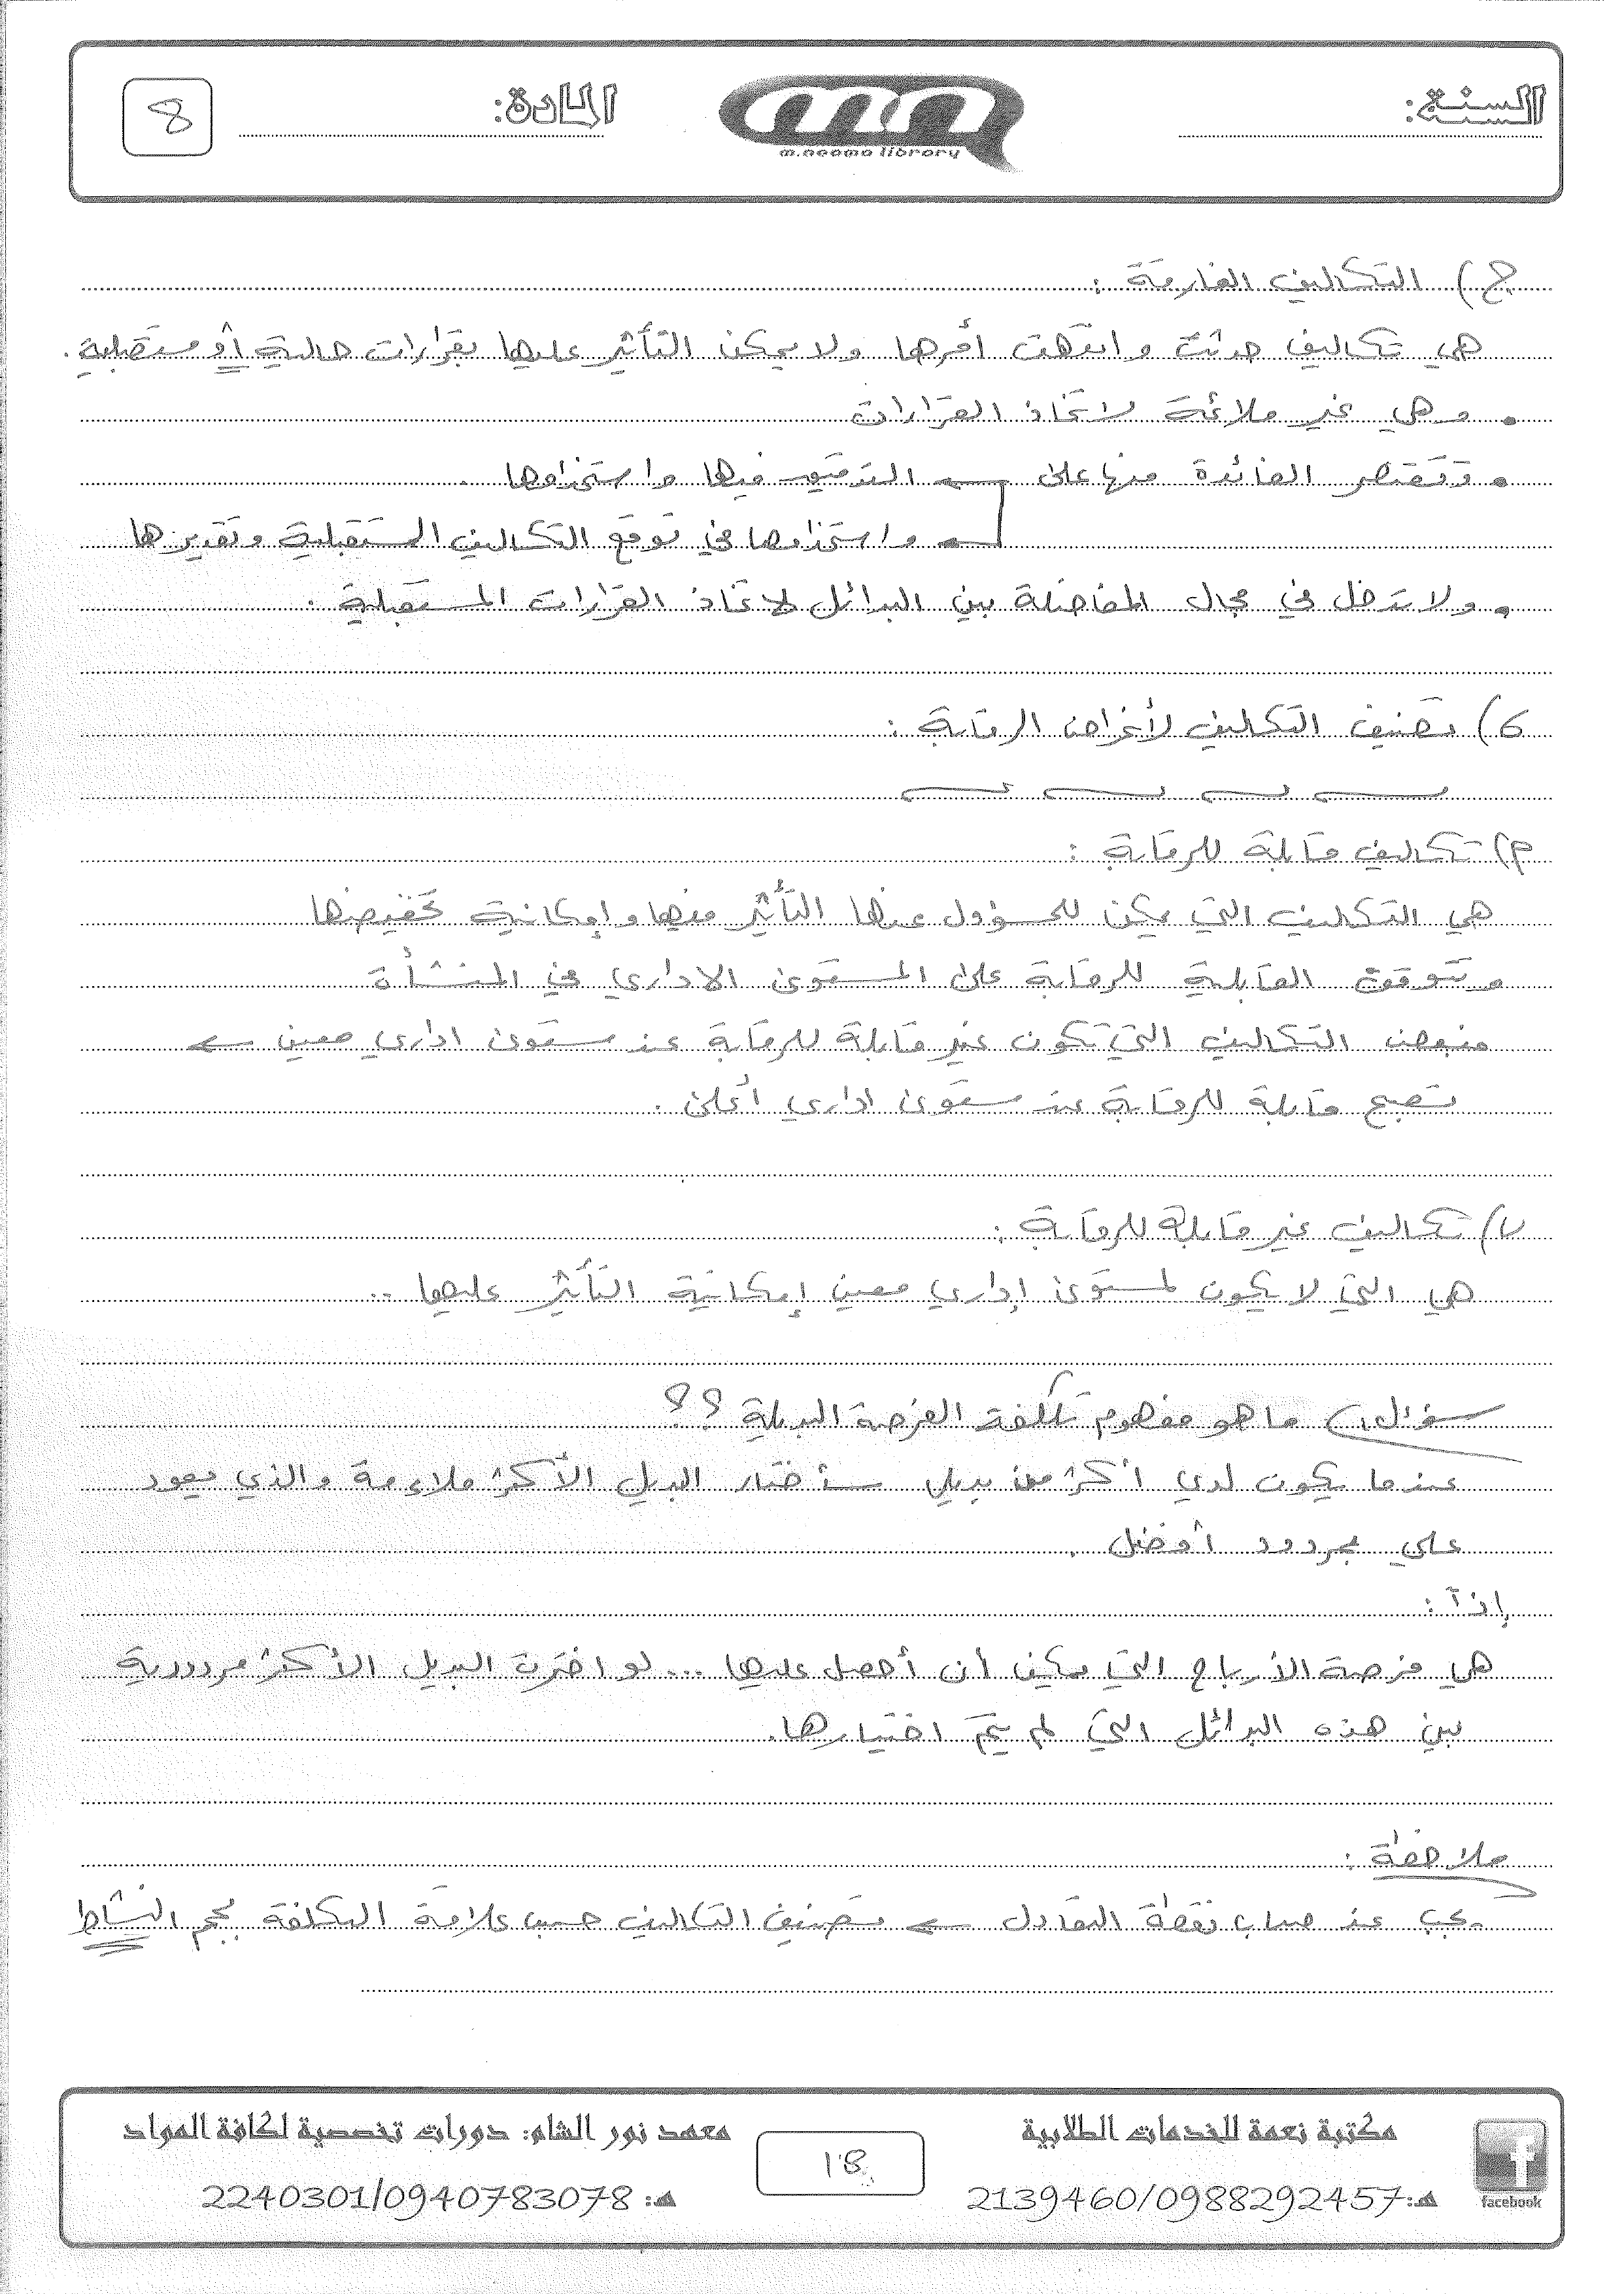 السنة:
m.neama library
المادة:
8
ج) التكاليف الغارقة :
هي تكاليف حدثت وانتهت أمرها ولا يمكن التأثير عليها بقرارات حالية أو مستقبلية .
• وهي غير ملائمة لاتخاذ القرارات
• وتقتصر الفائدة منها على ← التدقيق فيها واستخدامها .
← واستخدامها في توقع التكاليف المستقبلية وتقديرها
• ولا تدخل في مجال المفاضلة بين البدائل لاتخاذ القرارات المستقبلية .
6) تصنيف التكاليف لأغراض الرقابة :
م) تكاليف قابلة للرقابة :
هي التكاليف التي يمكن للمسؤول عنها التأثير فيها وإمكانية تخفيضها
وتتوقف القابلية للرقابة على المستوى الاداري في المنشأة
فبعض التكاليف التي تكون غير قابلة للرقابة عند مستوى اداري معين ←
تصبح قابلة للرقابة عند مستوى اداري أعلى .
ب) تكاليف غير قابلة للرقابة :
هي التي لا يكون لمستوى إداري معين إمكانية التأثير عليها ..
سؤال) ما هو مفهوم تكلفة الفرصة البديلة ؟؟
عندما يكون لدي أكثر من بديل سأختار البديل الأكثر ملاءمة والذي يعود
علي بمردود أفضل .
إذاً :
هي فرصة الأرباح التي يمكن أن أحصل عليها ... لو اخترت البديل الأكثر مردودية
بين هذه البدائل التي لم يتم اختيارها.
ملاحظة :
يجب عند حساب نقطة التعادل ← تصنيف التكاليف حسب علاقة التكلفة بحجم النشاط
facebook
مكتبة نعمة للخدمات الطلابية
هـ:2139460/0988292457
18
معهد نور الشام: دورات تخصصية لكافة المواد
هـ: 2240301/0940783078